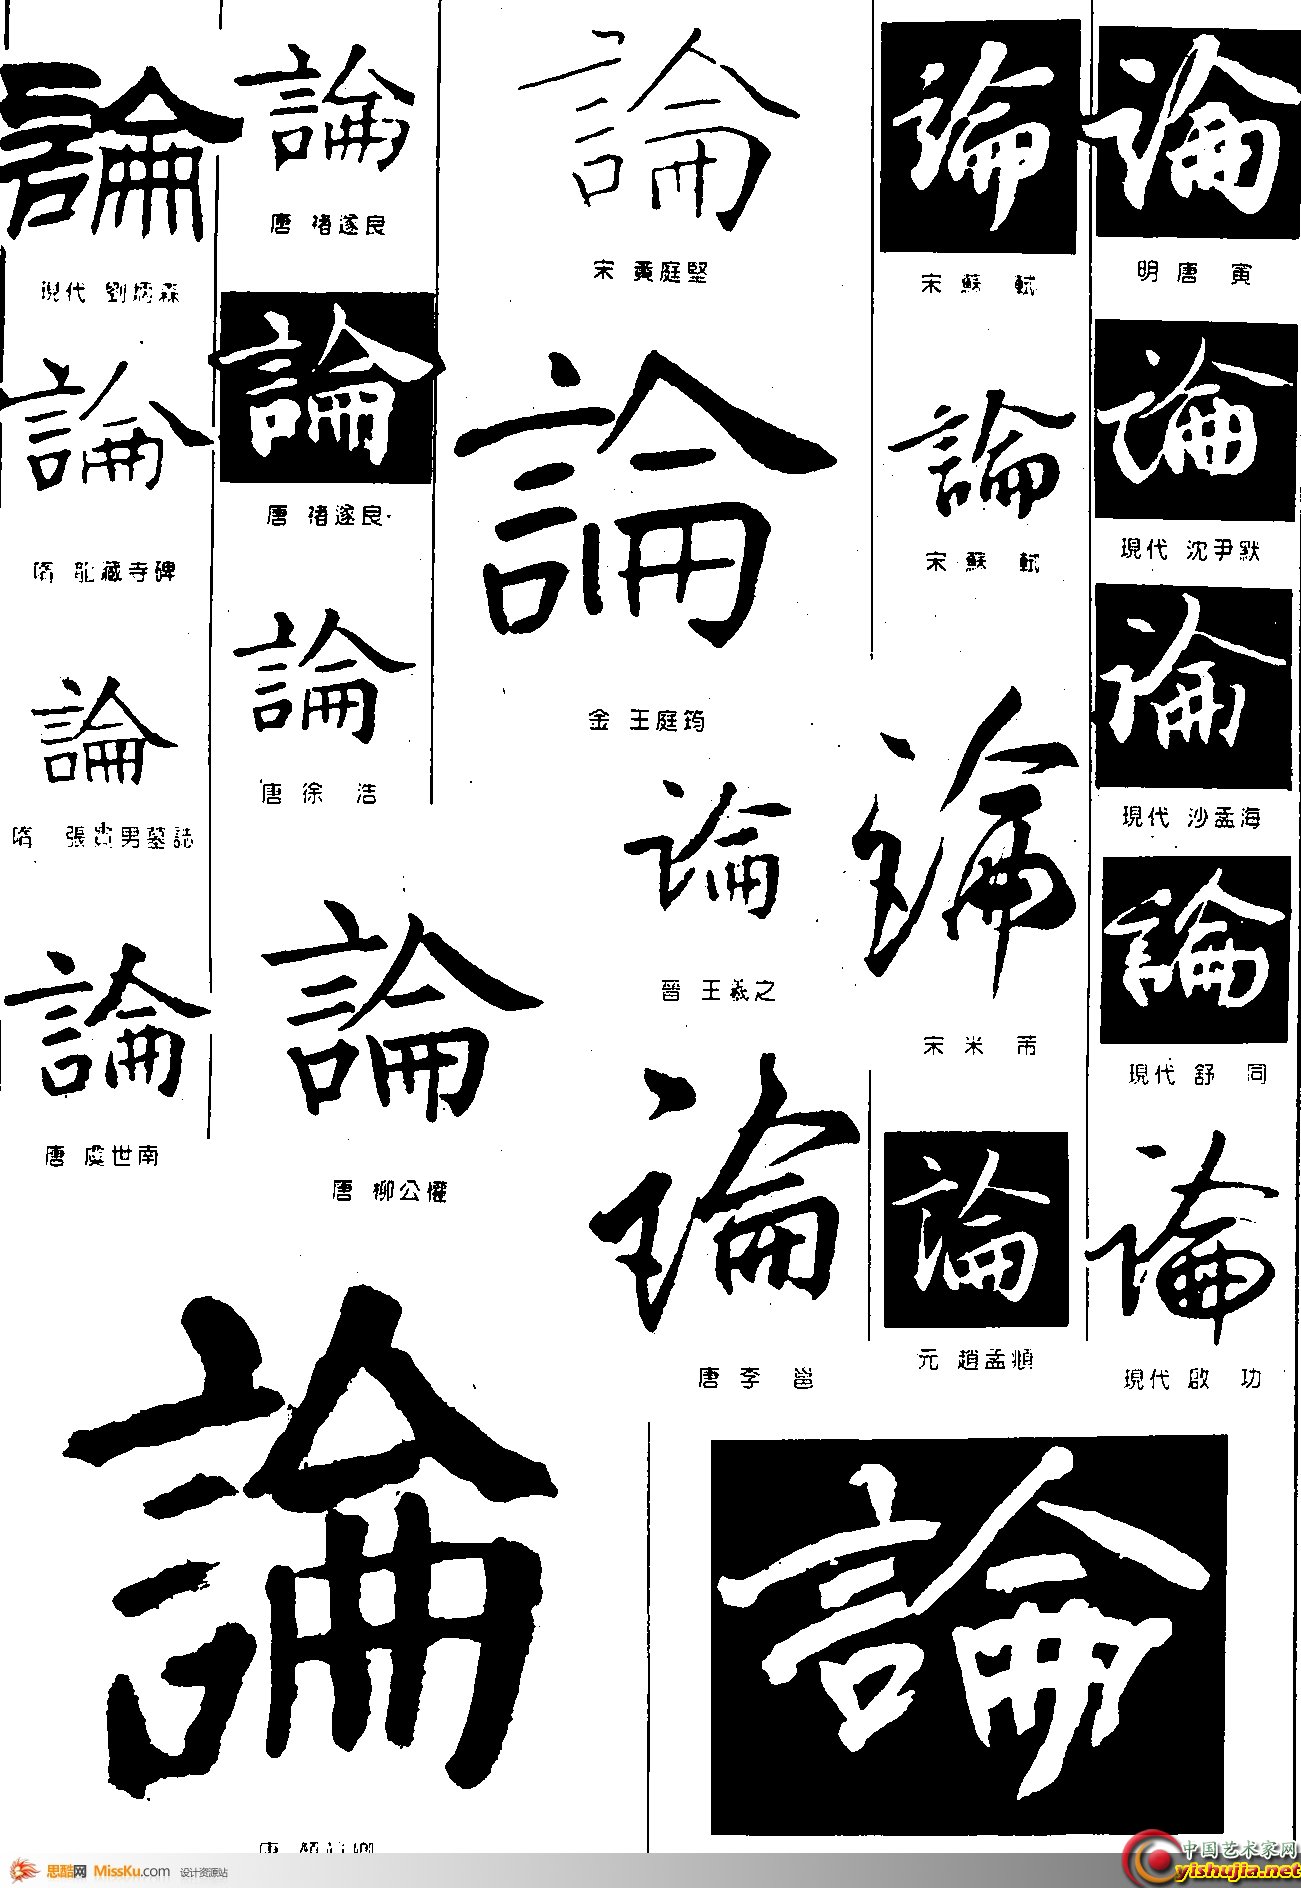 論
現代 劉炳森
論
隋 龍藏寺碑
論
隋 張貴男墓誌
論
唐 虞世南
論
唐 褚遂良
論
唐 褚遂良
論
唐 徐 浩
論
唐 柳公權
論
宋 黃庭堅
論
金 王庭筠
論
晉 王羲之
論
唐 李 邕
論
宋 蘇 軾
論
宋 蘇 軾
論
宋 米 芾
論
元 趙孟頫
論
明 唐 寅
論
現代 沈尹默
論
現代 沙孟海
論
現代 舒 同
論
現代 啟 功
論
唐
論
思酷网 MissKu.com 设计资源站
中国艺术家网
yishujia.net